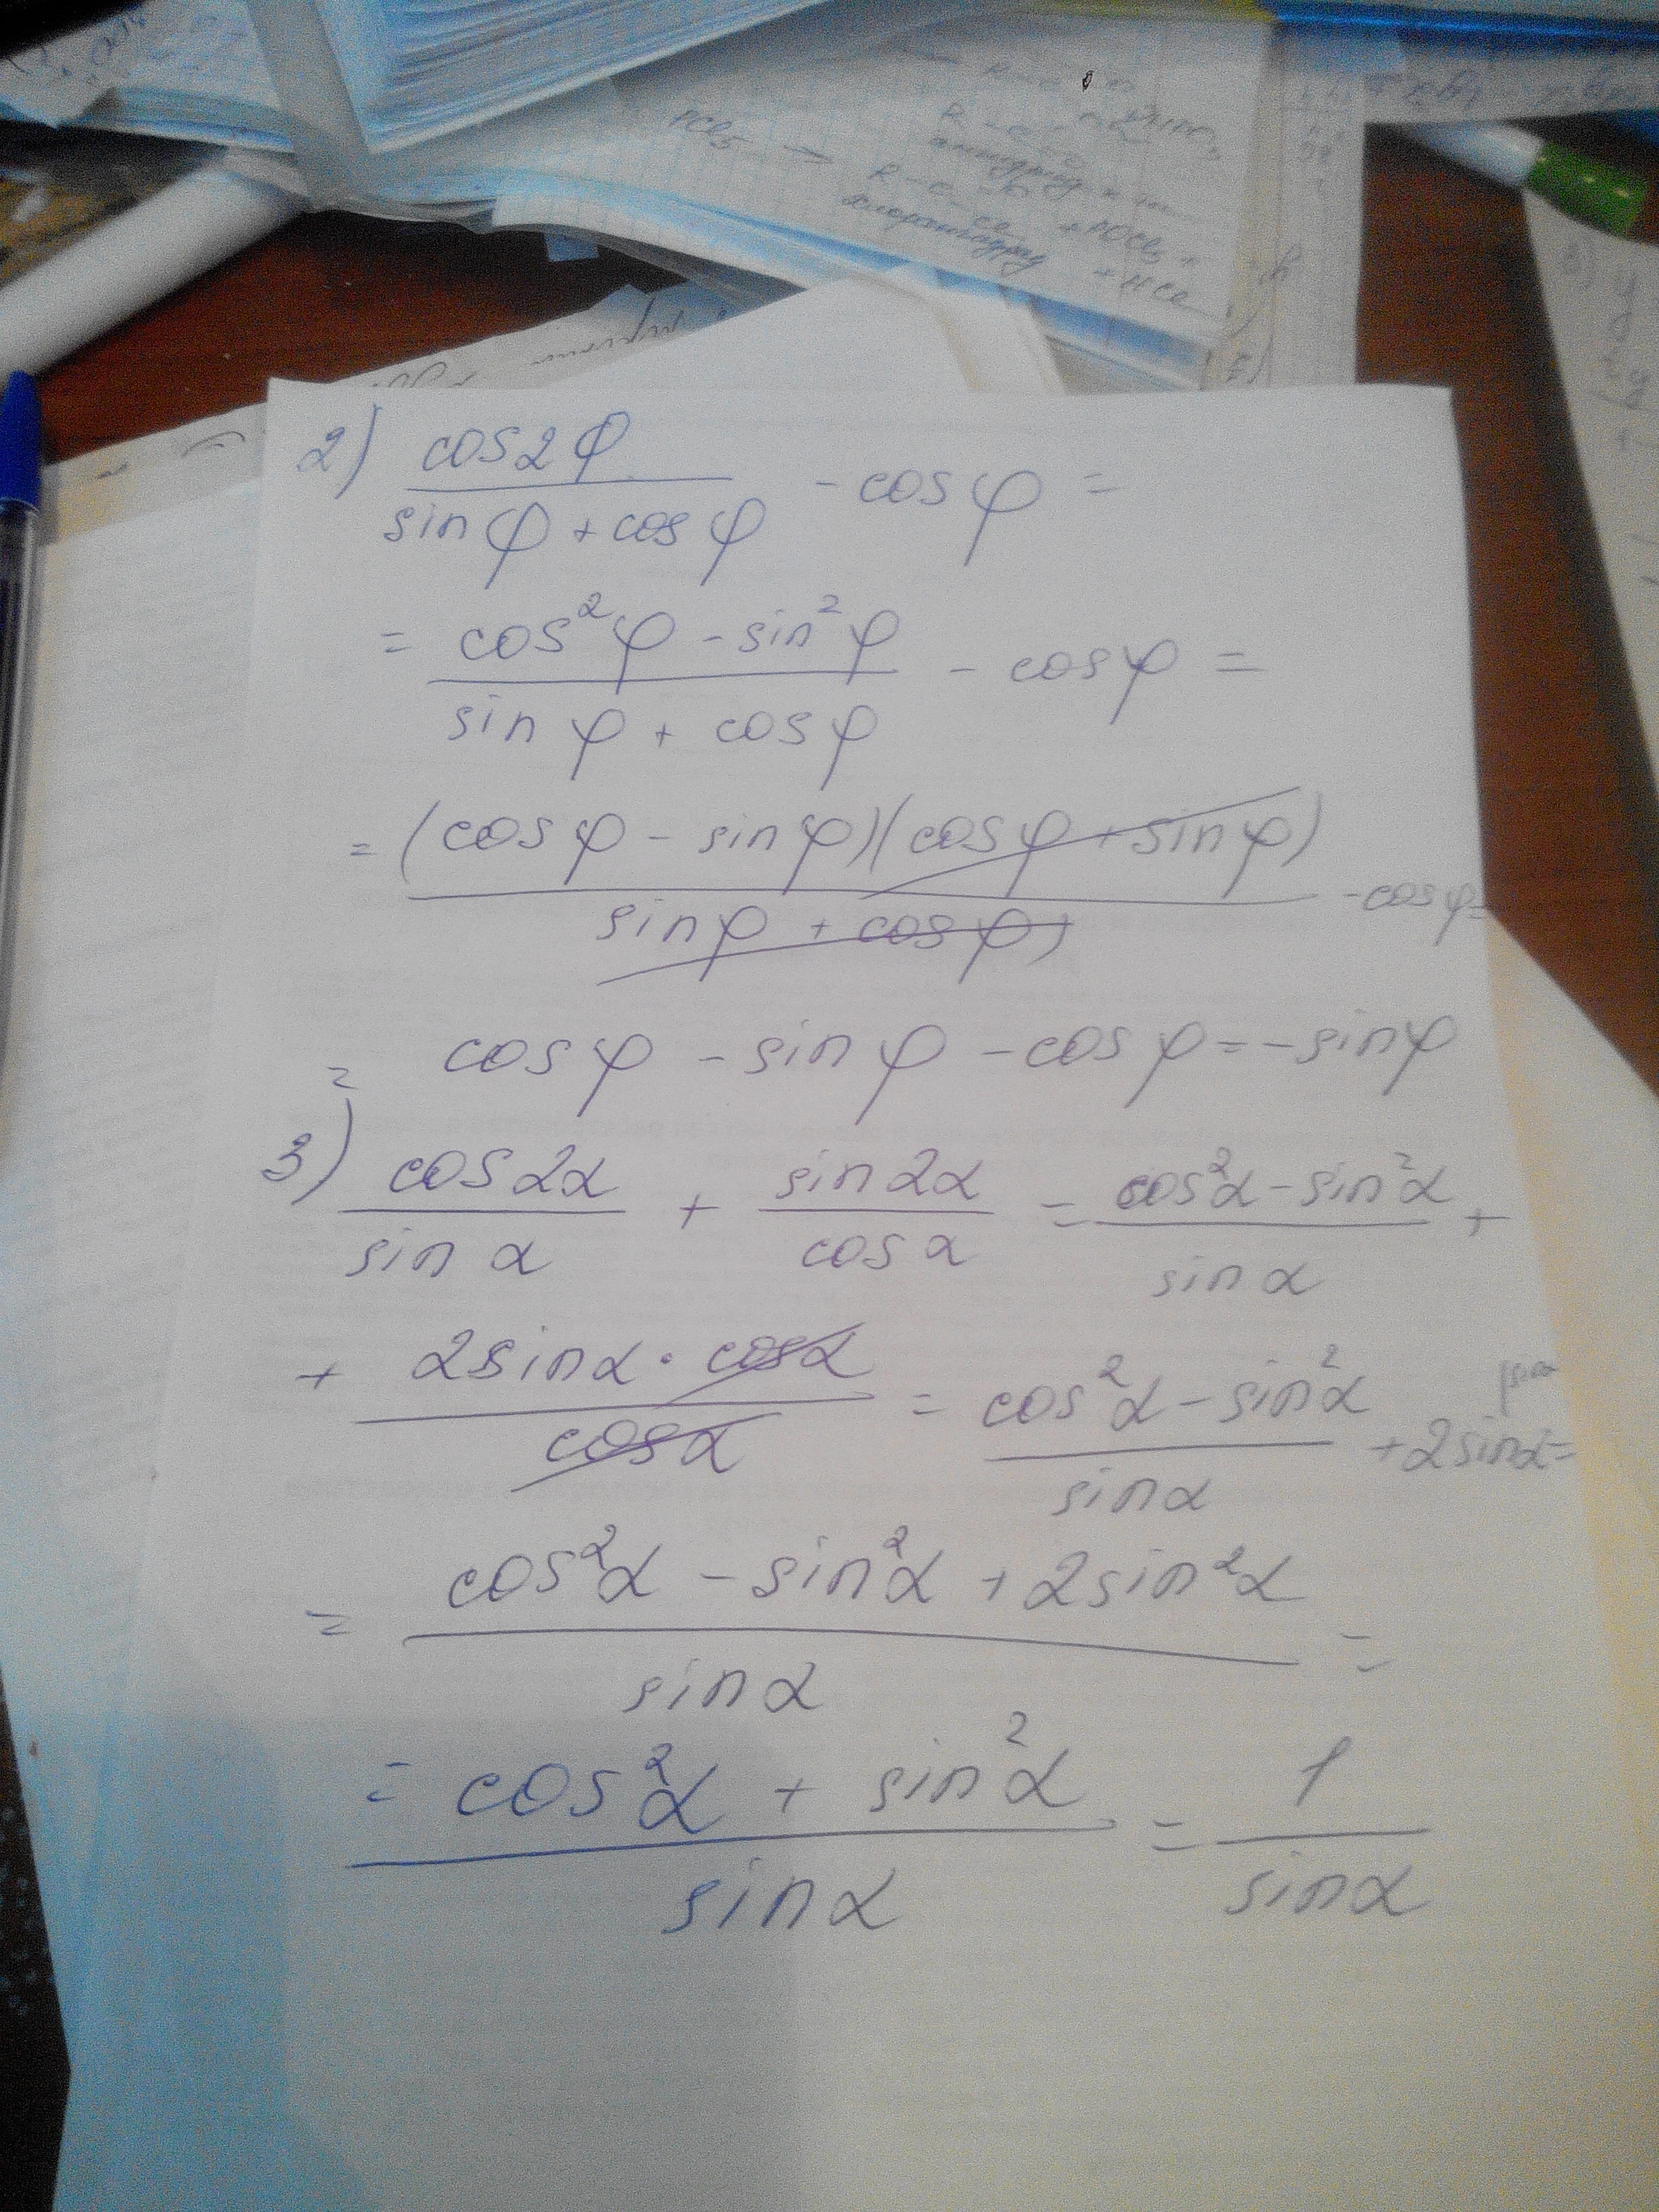 PCl5 →
+ HCl
2) cos2φ / (sinφ + cosφ) - cosφ =
= (cos²φ - sin²φ) / (sinφ + cosφ) - cosφ =
= (cosφ - sinφ)(cosφ + sinφ) / (sinφ + cosφ) - cosφ =
= cosφ - sinφ - cosφ = -sinφ
3) cos2α / sinα + sin2α / cosα = (cos²α - sin²α) / sinα +
+ 2sinα · cosα / cosα = (cos²α - sin²α) / sinα + 2sinα =
= (cos²α - sin²α + 2sin²α) / sinα =
= (cos²α + sin²α) / sinα = 1 / sinα